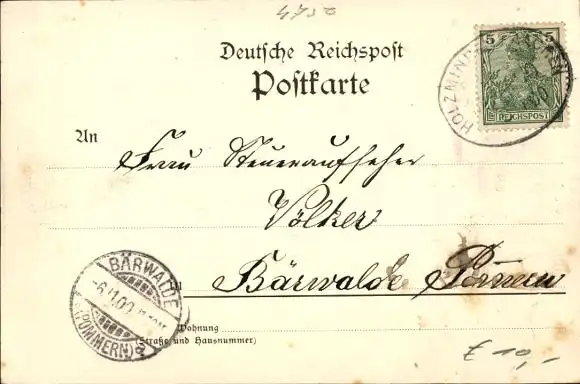 4750
Deutsche Reichspost
Postkarte
5 5
REICHSPOST
HOLZMIND
An
Frau Steueraufseher
Völker
Bärwalde Pomern
BÄRWALDE
(POMMERN)
Wohnung
(Straße und Hausnummer)
£ 10,-